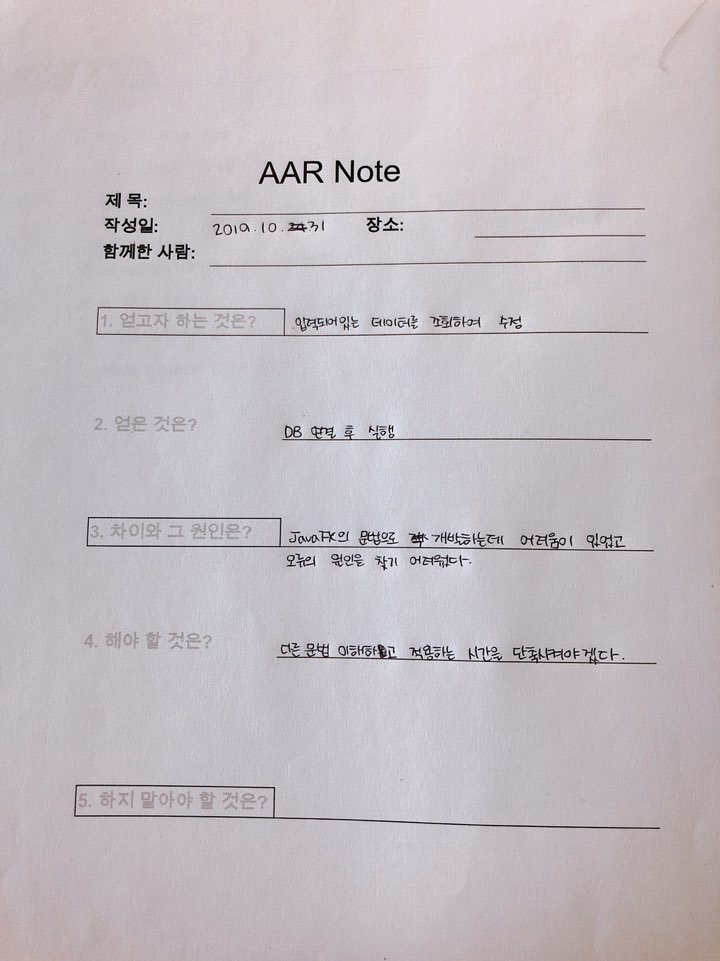 AAR Note
제 목:
작성일: 2019.10.31 장소:
함께한 사람:
1. 얻고자 하는 것은? 입력되어있는 데이터를 조회하여 수정
2. 얻은 것은? DB 연결 후 실행
3. 차이와 그 원인은? JavaFX의 문법으로 개발하는데 어려움이 있었고
오류의 원인을 찾기 어려웠다.
4. 해야 할 것은? 다른 문법 이해하고 적용하는 시간을 단축시켜야겠다.
5. 하지 말아야 할 것은?